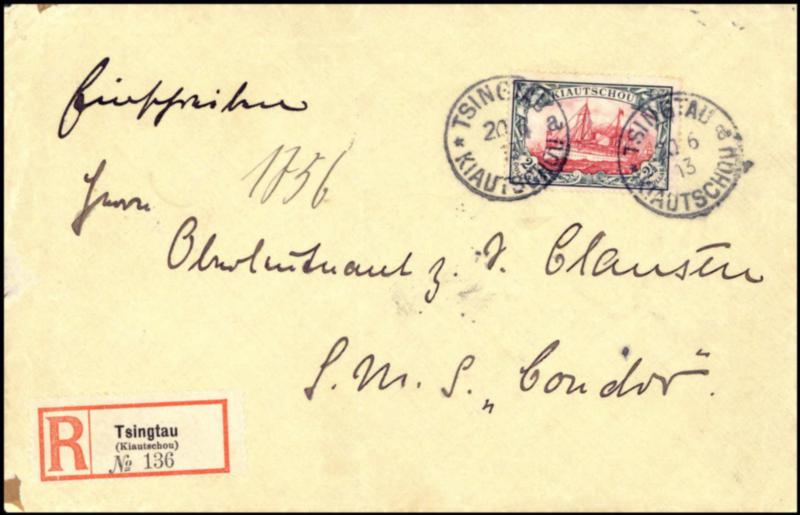 Einschreiben
KIAUTSCHOU
2½
2½
TSINGTAU
20 6 a
* KIAUTSCHOU
TSINGTAU a
20 6
13
* KIAUTSCHOU
1756
Herrn
Oberleutnant z. S. Clausen
S. M. S. „Condor“.
R
Tsingtau
(Kiautschou)
№ 136